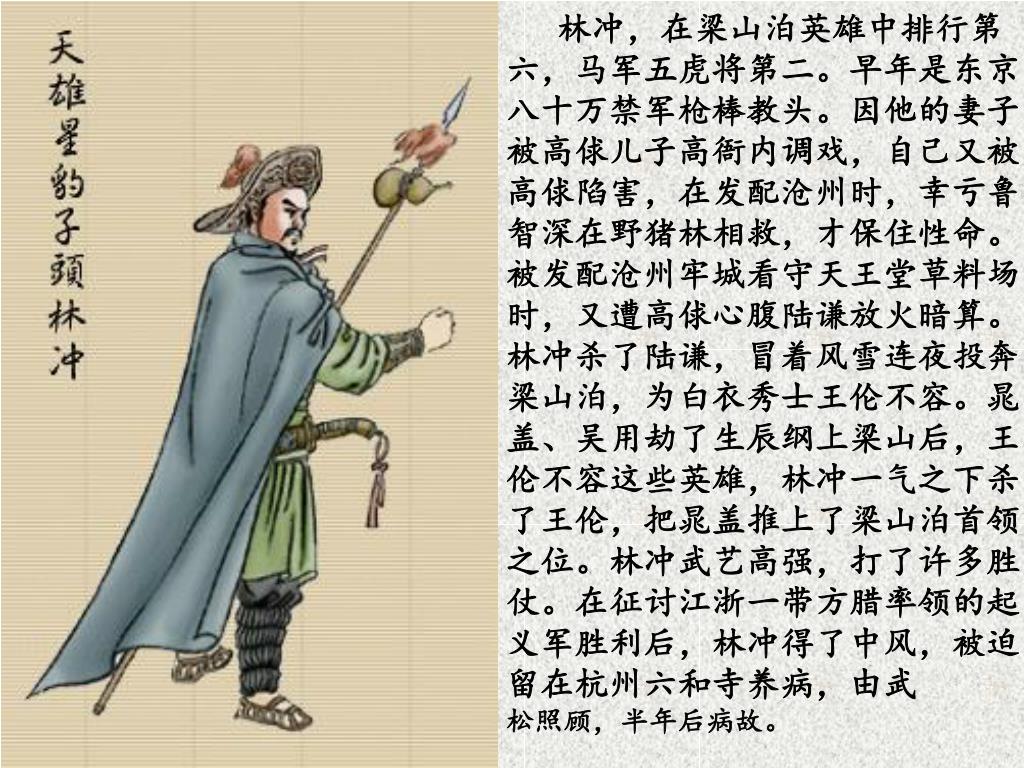 天雄星豹子頭林冲
林冲，在梁山泊英雄中排行第
六，马军五虎将第二。早年是东京
八十万禁军枪棒教头。因他的妻子
被高俅儿子高衙内调戏，自己又被
高俅陷害，在发配沧州时，幸亏鲁
智深在野猪林相救，才保住性命。
被发配沧州牢城看守天王堂草料场
时，又遭高俅心腹陆谦放火暗算。
林冲杀了陆谦，冒着风雪连夜投奔
梁山泊，为白衣秀士王伦不容。晁
盖、吴用劫了生辰纲上梁山后，王
伦不容这些英雄，林冲一气之下杀
了王伦，把晁盖推上了梁山泊首领
之位。林冲武艺高强，打了许多胜
仗。在征讨江浙一带方腊率领的起
义军胜利后，林冲得了中风，被迫
留在杭州六和寺养病，由武
松照顾，半年后病故。